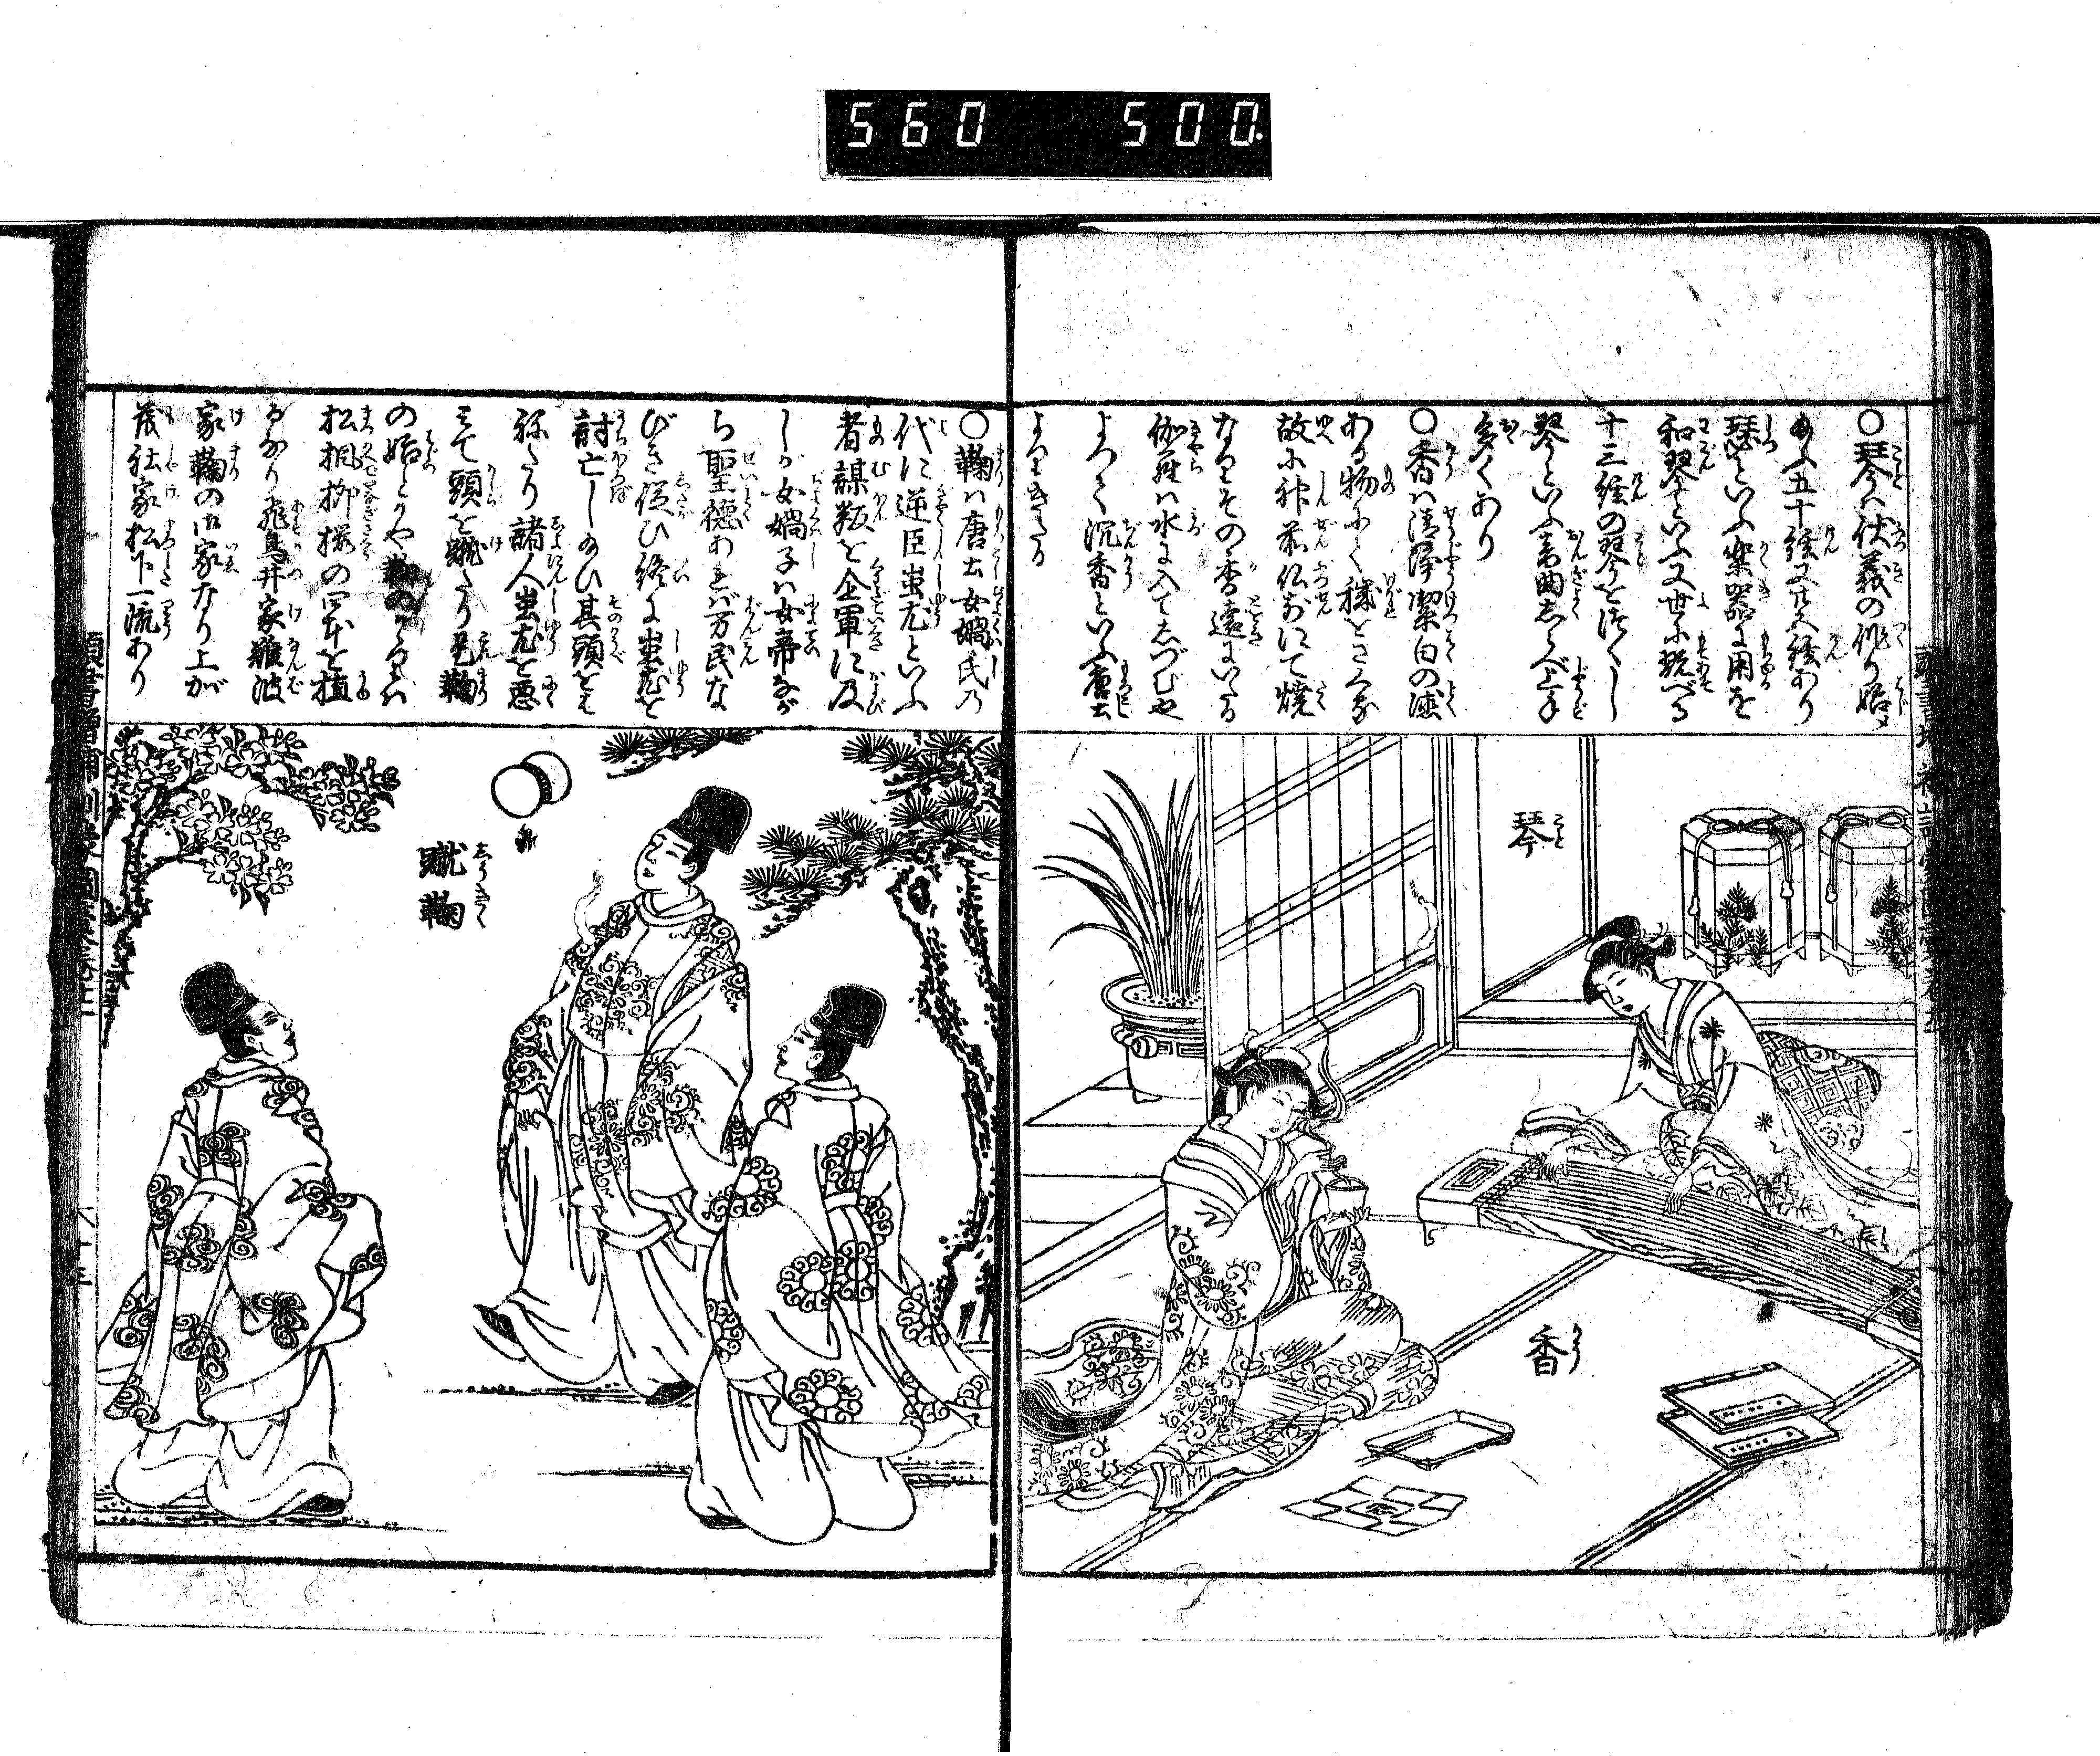 560 500.
〇琴ハ伏義の作り始
給ふ五十絃又廿五絃あり
瑟といふ楽器に用を
和琴といふ又世に翫べる
十三絃の琴を
琴といふ音曲しらべ上手
多くあり
〇香ハ清浄潔白の徳
ある物にて穢をさる
故に神前仏前にて焼
なりその香遠にいたる
伽羅ハ水に入てしづむ也
よつて沉香といふ唐土
よりきたる
琴
こと
香
かう
〇鞠ハ唐土女媧氏乃
代に逆臣蚩尤といふ
者謀叛を企軍に及
しが女媧子ハ女帝ながら
ら聖徳あれバ万民な
びき従ひ終に蚩尤を
討亡し給ひ其頭をも
諸人蚩尤を悪
みて頭を蹴たり是鞠
の始とかや
松楓柳桜の四本を植
るなり飛鳥井家難波
家鞠の御家なり上が
茂社家松下一流あり
蹴鞠
しうきく
頭書増補訓蒙図彙巻之